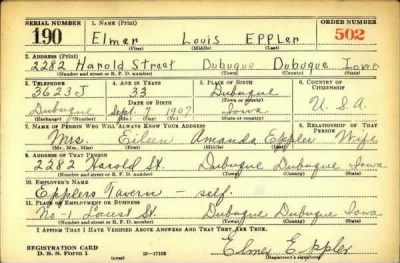 SERIAL NUMBER 1. NAME (Print) ORDER NUMBER
190 Elmer Louis Eppler 502
(First) (Middle) (Last)
2. ADDRESS (Print)
2282 Harold Street Dubuque Dubuque Iowa
(Number and street or R. F. D. number) (Town) (County) (State)
3. TELEPHONE 4. AGE IN YEARS 5. PLACE OF BIRTH 6. COUNTRY OF CITIZENSHIP
3623J 33 Dubuque
DATE OF BIRTH (Town or county)
Dubuque Sept. 7 1907 Iowa U.S.A.
(Exchange) (Number) (Mo.) (Day) (Yr.) (State or country)
7. NAME OF PERSON WHO WILL ALWAYS KNOW YOUR ADDRESS 8. RELATIONSHIP OF THAT PERSON
Mrs. Eileen Amanda Eppler Wife
(Mr., Mrs., Miss) (First) (Middle) (Last)
9. ADDRESS OF THAT PERSON
2282 Harold St. Dubuque Dubuque Iowa
(Number and street or R. F. D. number) (Town) (County) (State)
10. EMPLOYER'S NAME
Epplers Tavern — self.
11. PLACE OF EMPLOYMENT OR BUSINESS
No-1 Locust St. Dubuque Dubuque Iowa
(Number and street or R. F. D. number) (Town) (County) (State)
I AFFIRM THAT I HAVE VERIFIED ABOVE ANSWERS AND THAT THEY ARE TRUE.
REGISTRATION CARD
D. S. S. Form 1 16—17105 Elmer Eppler
(Registrant's signature)